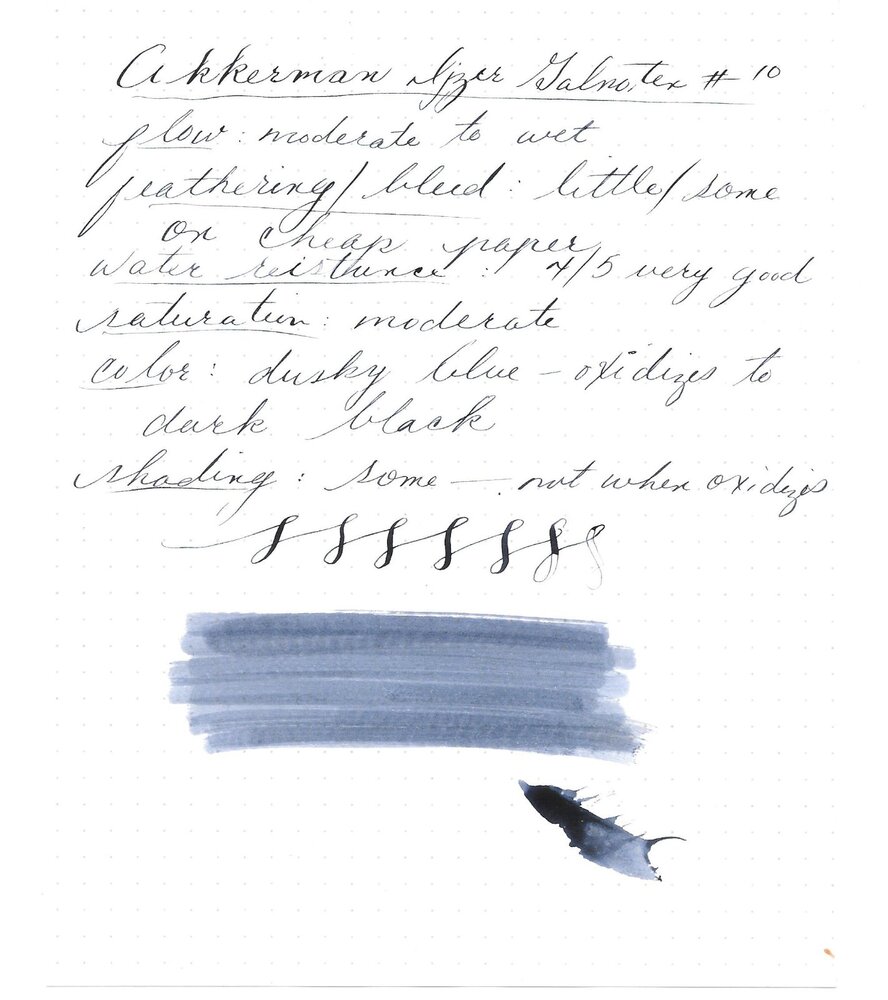 Akkerman Ijzer Galnoten # 10
flow: moderate to wet
feathering/ bleed: little/some
on cheap paper
water reistance: 4/5 very good
saturation: moderate
color: dusky blue - oxidizes to
dark black
shading: some — not when oxidizes